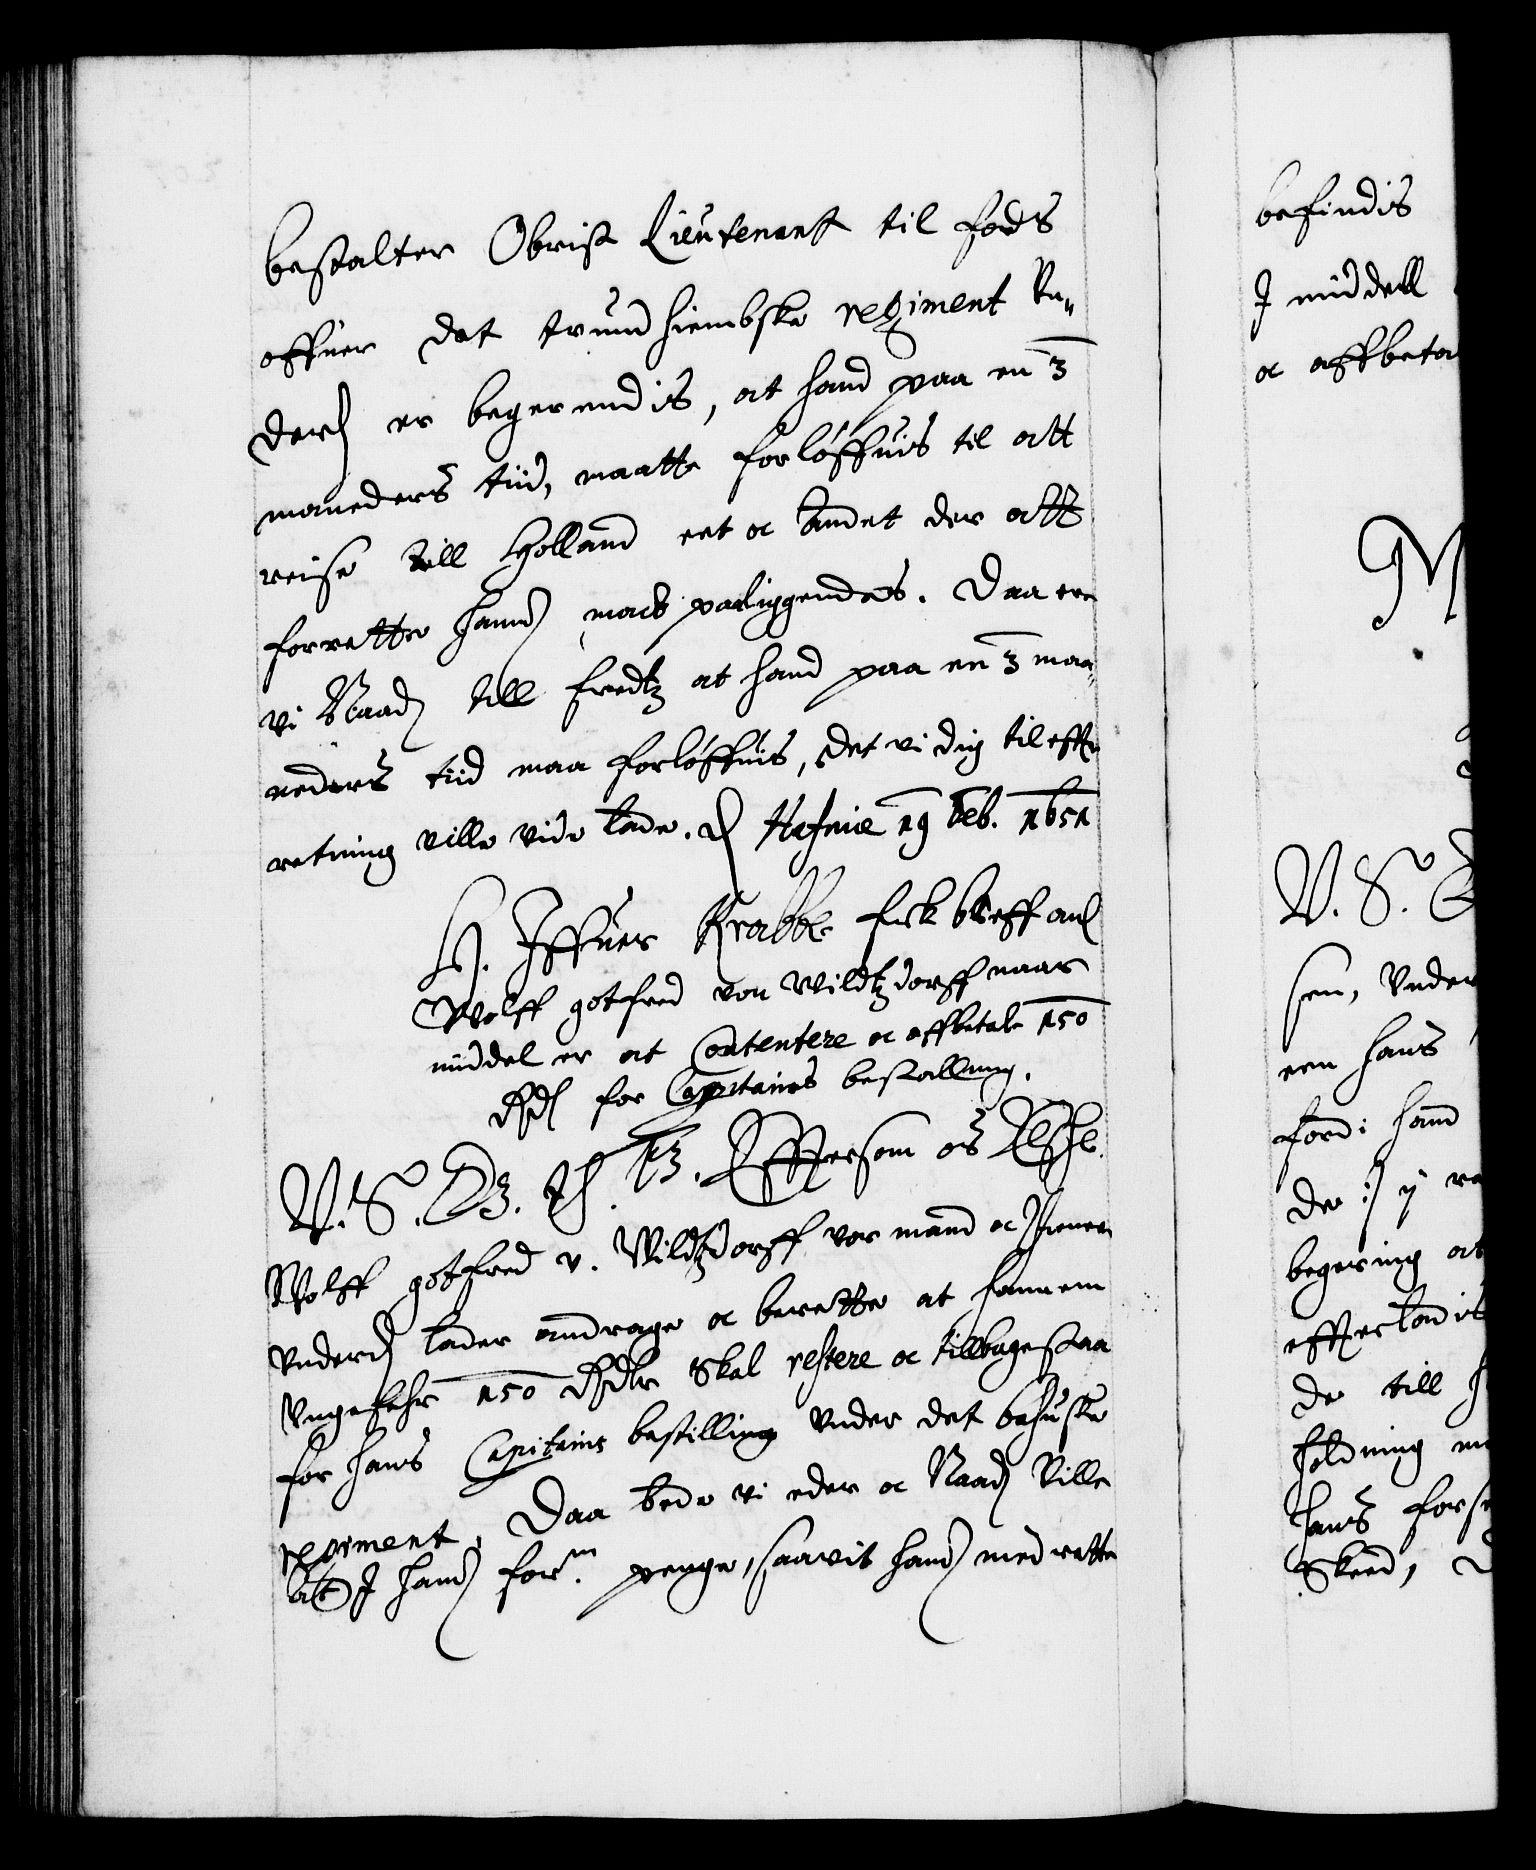 bestalter Obrist Lieutenant til fods
offuer det trundhiembske regiment Un„
derd er begerendis, at hand paa en 3
maaneders tiid, maatte forløffuis til att
reise till Holland eet oc andet der att
forrette hannd magt paaliggendes. Daa ere
vi Naad till fredtz at hand paa en 3 maa„
neders tiid maa forløffuis, det vi dig til effter
retning ville vide lade. D Hafniæ 19 Feb. 1651
H. Iffuer Krabbe fick breff anl
Wolff gotfred von Wildtzdorff naar
middel er at Contentere oc affbetale 150
Rdl for Capitains bestalling.
V. S. G. T. Effter som os Elshel.
Wolff gotfred v. Wildtzdorff vor mand oc thienere
underd lader andrage oc berette at hannem
Ungefehr 150 Rdlr skal restere oc tilbagestaa
for hans Capitains bestilling under det bahuske
regiment, Daa bede vi eder oc Naad Ville
at I hand forn penge, saavit hand med rette
befindis
I middell
oc affbeta
M
V. S. G
sen, Under
een hans
fordi hand
de :/ ij
begering at
effterladit
de till
holdning
hans forse
Skeed,